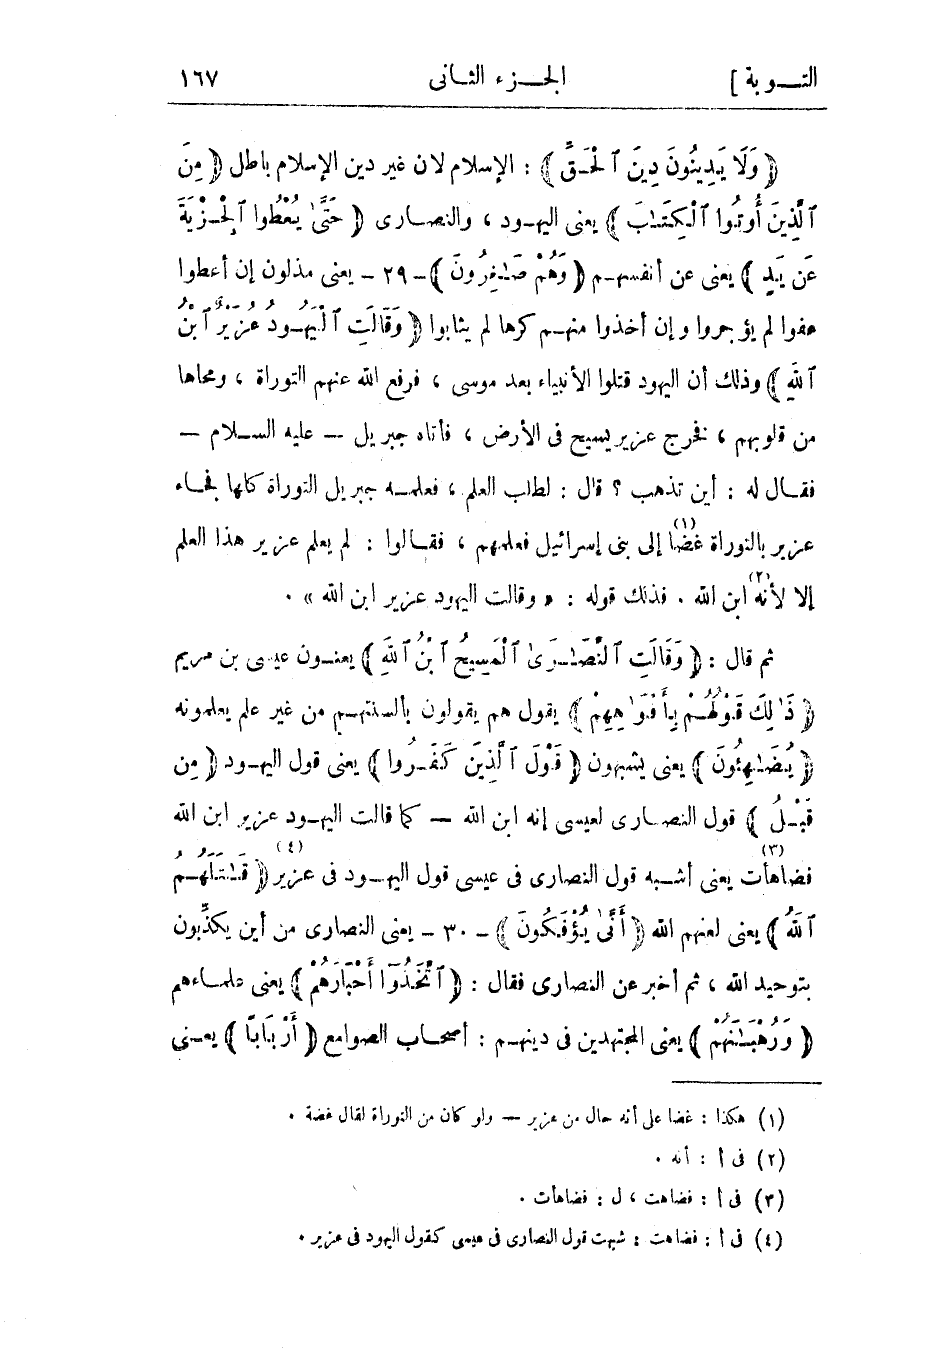 التـــوبة ] الجـــزء الثانى ١٦٧
﴿ وَلَا يَدِينُونَ دِينَ ٱلْحَـقِّ ﴾ : الإسلام لان غير دين الإسلام باطل ﴿ مِنَ
ٱلَّذِينَ أُوتُوا ٱلْكِتَـٰبَ ﴾ يعنى اليهـود ، والنصـارى ﴿ حَتَّىٰ يُعْطُوا ٱلْجِـزْيَةَ
عَن يَـدٍ ﴾ يعنى عن أنفسهـم ﴿ وَهُمْ صَـٰغِرُونَ ﴾ ـ ٢٩ ـ يعنى مذلون إن أعطوا
عفوا لم يؤجروا وإن أخذوا منهـم كرها لم يثابوا ﴿ وَقَالَتِ ٱلْيَهُـودُ عُزَيْرٌ ٱبْنُ
ٱللَّهِ ﴾ وذلك أن اليهود قتلوا الأنبياء بعد موسى ، فرفع الله عنهم التوراة ، ومحاها
من قلوبهم ، فخرج عزير يسيح فى الأرض ، فأتاه جبريل — عليه السـلام —
فقـال له : أين تذهب ؟ قال : لطلب العلم ، فعلمـه جبريل التوراة كلها فجـاء
عزير بالتوراة غضًا (١) إلى بنى إسرائيل فعلمهم ، فقـالوا : لم يعلم عزير هذا العلم
إلا لأنه (٢) ابن الله . فذلك قوله : « وقالت اليهود عزير ابن الله » .
ثم قال : ﴿ وَقَالَتِ ٱلنَّصَـٰرَىٰ ٱلْمَسِيحُ ٱبْنُ ٱللَّهِ ﴾ يعنـون عيسى بن مريم
﴿ ذَٰلِكَ قَوْلُهُـمْ بِأَفْوَٰهِهِمْ ﴾ يقول هم يقولون بألسنتهـم من غير علم يعلمونه
﴿ يُضَـٰهِئُونَ ﴾ يعنى يشبهون ﴿ قَوْلَ ٱلَّذِينَ كَفَـرُوا ﴾ يعنى قول اليهـود ﴿ مِن
قَبْـلُ ﴾ قول النصـارى لعيسى إنه ابن الله — كما قالت اليهـود عزير ابن الله
فضاهأت (٣) يعنى أشـبه قول النصارى فى عيسى قول اليهـود فى عزير (٤) ﴿ قَـٰتَلَهُـمُ
ٱللَّهُ ﴾ يعنى لعنهم الله ﴿ أَنَّىٰ يُؤْفَكُونَ ﴾ ـ ٣٠ ـ يعنى النصارى من أين يكذِّبون
بتوحيد الله ، ثم أخبر عن النصارى فقال : ﴿ ٱتَّخَذُوٓا أَحْبَارَهُمْ ﴾ يعنى علمـاءهم
﴿ وَرُهْبَـٰنَهُمْ ﴾ يعنى المجتهدين فى دينهـم : أصحـاب الصوامع ﴿ أَرْبَابًا ﴾ يعـنى
(١) هكذا : غضا على أنه حال من عزير — ولو كان من التوراة لقال غضة .
(٢) فى أ : أنه .
(٣) فى أ : فضاهت ، ل : فضاهأت .
(٤) فى أ : فضاهت : شبهت قول النصارى فى عيسى كقول اليهود فى عزير .